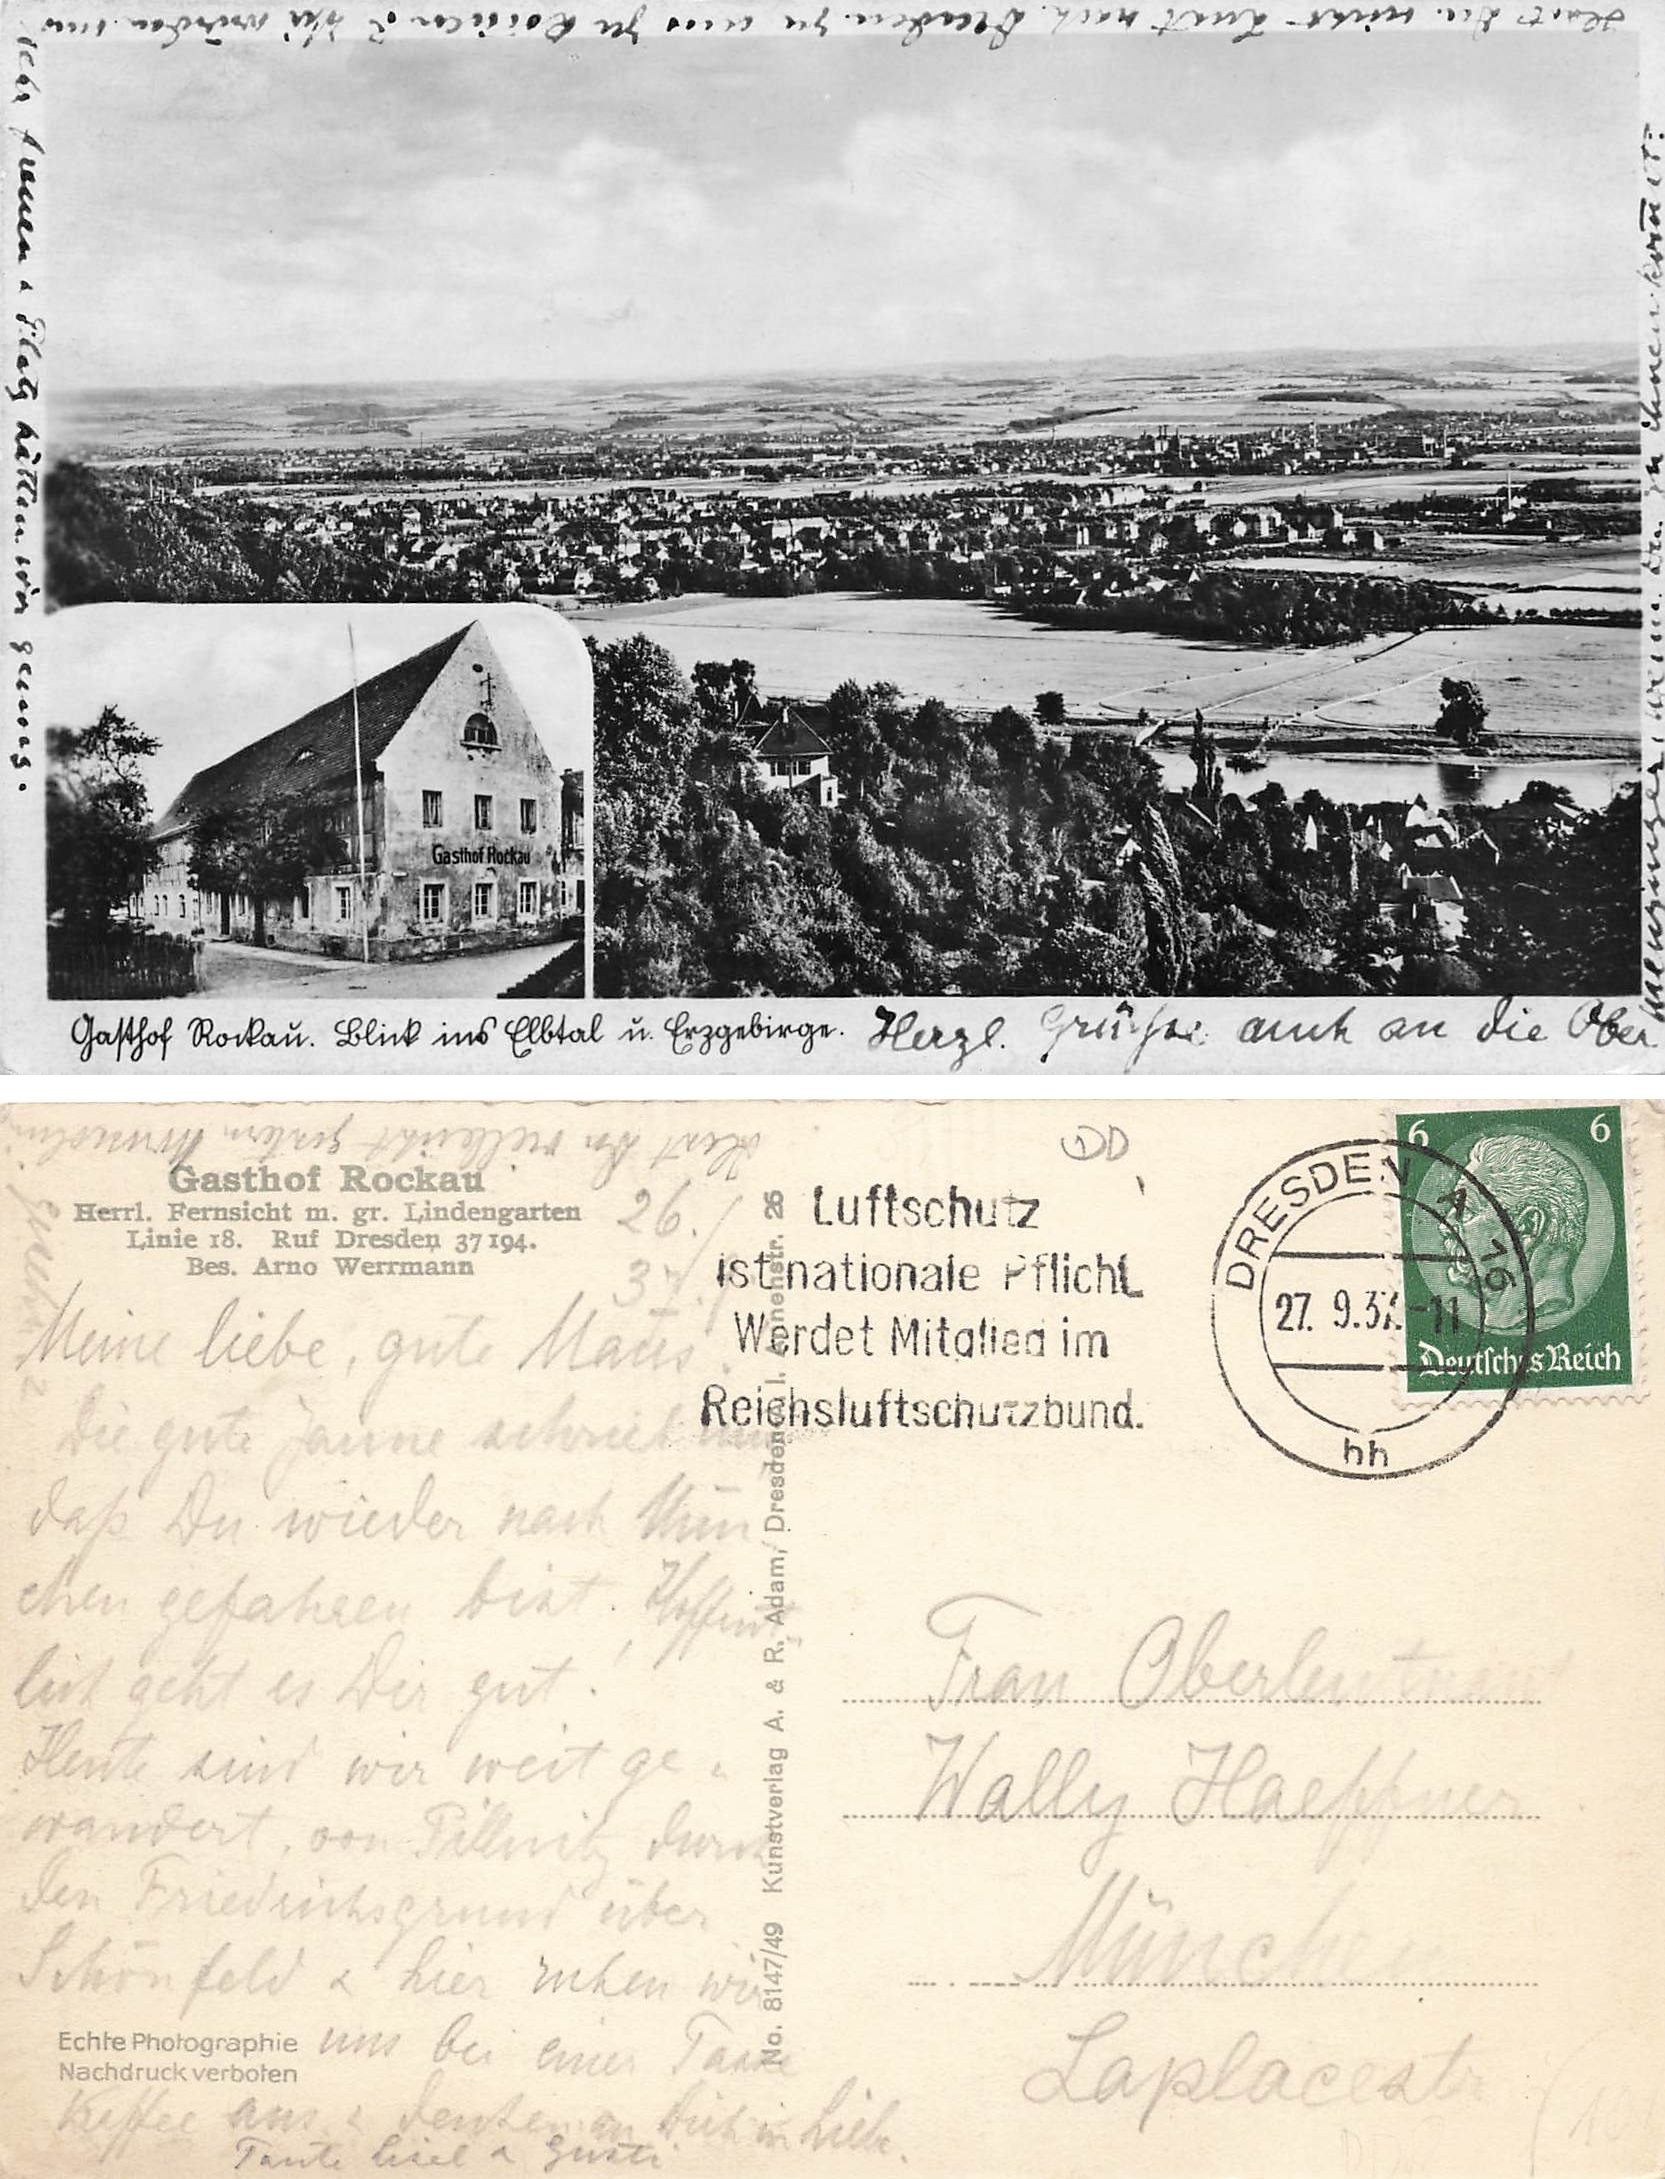 Hast Du nicht Lust nach Dresden zu uns zu kommen? Wir würden uns
sehr freuen & Platz hätten wir genug.
Gasthof Rockau
Gasthof Rockau. Blick ins Elbtal u. Erzgebirge.
Herzl. Grüße auch an die Ober
wenn Du zu ihnen kommst.
Hast Du vielleicht gestern
Gasthof Rockau
Herrl. Fernsicht m. gr. Lindengarten
Linie 18. Ruf Dresden 37194.
Bes. Arno Werrmann
26./
37.
Meine liebe, gute Maus!
Die gute Janne schrieb mir
daß Du wieder nach Mün
chen gefahren bist. Hoffent
lich geht es Dir gut!
Heute sind wir weit ge
wandert, von Pillnitz durch
den Friedrichsgrund über
Schönfeld & hier ruhen wir
uns bei einer Tasse
Kaffee aus & denken an Dich in Liebe.
Tante Lisel & Gusti
Echte Photographie
Nachdruck verboten
No. 8147/49 Kunstverlag A. & R. Adam, Dresden-A. 1. Annenstr. 26
DD
Luftschutz
ist nationale Pflicht
Werdet Mitglied im
Reichsluftschutzbund.
DRESDEN A 16
27.9.37.-11
hh
6 6
Deutsches Reich
Frau Oberleutnant
Wally Haeffner
München
Laplacestr.